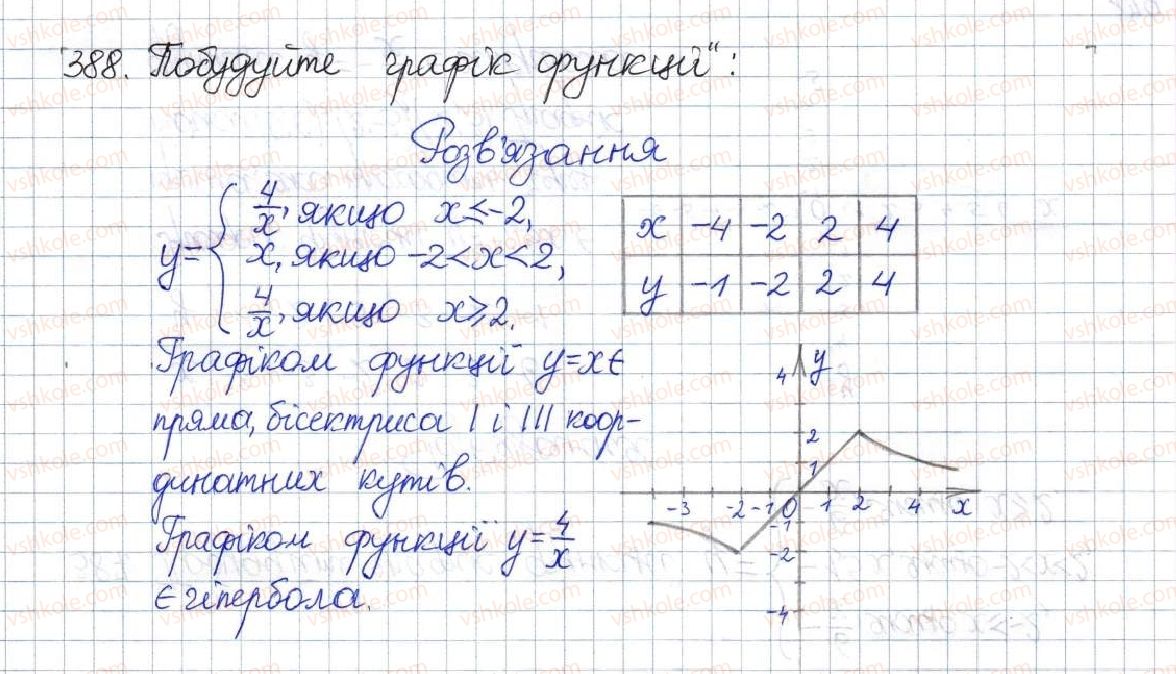 388. Побудуйте графік функції":
Розв'язання
y = { 4/x, якщо x ≤ -2,
x, якщо -2 < x < 2,
4/x, якщо x ⩾ 2.
x -4 -2 2 4
y -1 -2 2 4
Графіком функції y=x є
пряма, бісектриса I і III коор-
динатних кутів.
Графіком функції y = 4/x
є гіпербола.
4 y
2
1
-3 -2 -1 0 1 2 4 x
-1
-2
-4
vshkole.com